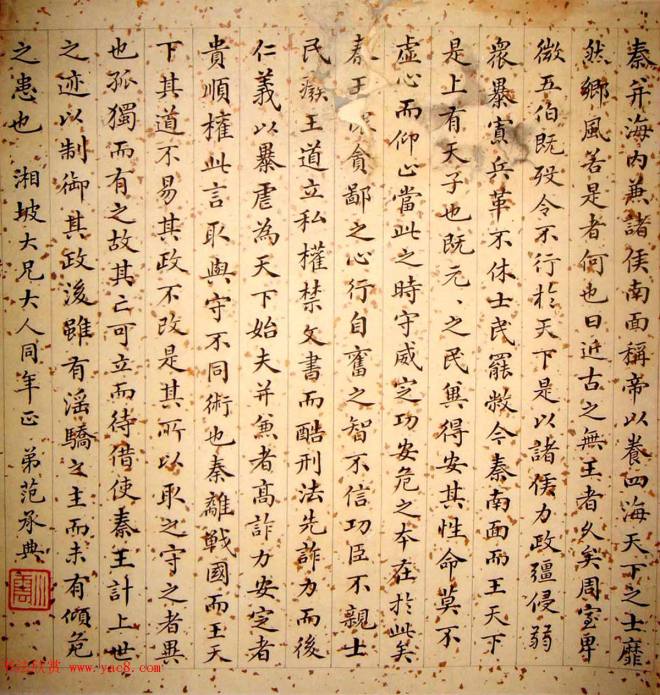 秦并海内兼諸侯南面稱帝以養四海天下之士靡
然鄉風若是者何也曰近古之無王者久矣周室卑
微五伯既歿令不行於天下是以諸侯力政彊侵弱
衆暴寡兵革不休士民罷敝今秦南面而王天下
是上有天子也既元、之民兾得安其性命莫不
虛心而仰上當此之時守威定功安危之本在於此矣
秦王懷貪鄙之心行自奮之智不信功臣不親士
民廢王道立私權禁文書而酷刑法先詐力而後
仁義以暴虐為天下始夫并兼者高詐力安定者
貴順權此言取與守不同術也秦離戰國而王天
下其道不易其政不改是其所以取之守之者異
也孤獨而有之故其亡可立而待借使秦王計上世
之迹以制御其政後雖有淫驕之主而未有傾危
之患也 湘坡大兄大人同年正 弟范承典
书法欣赏 www.yac8.com